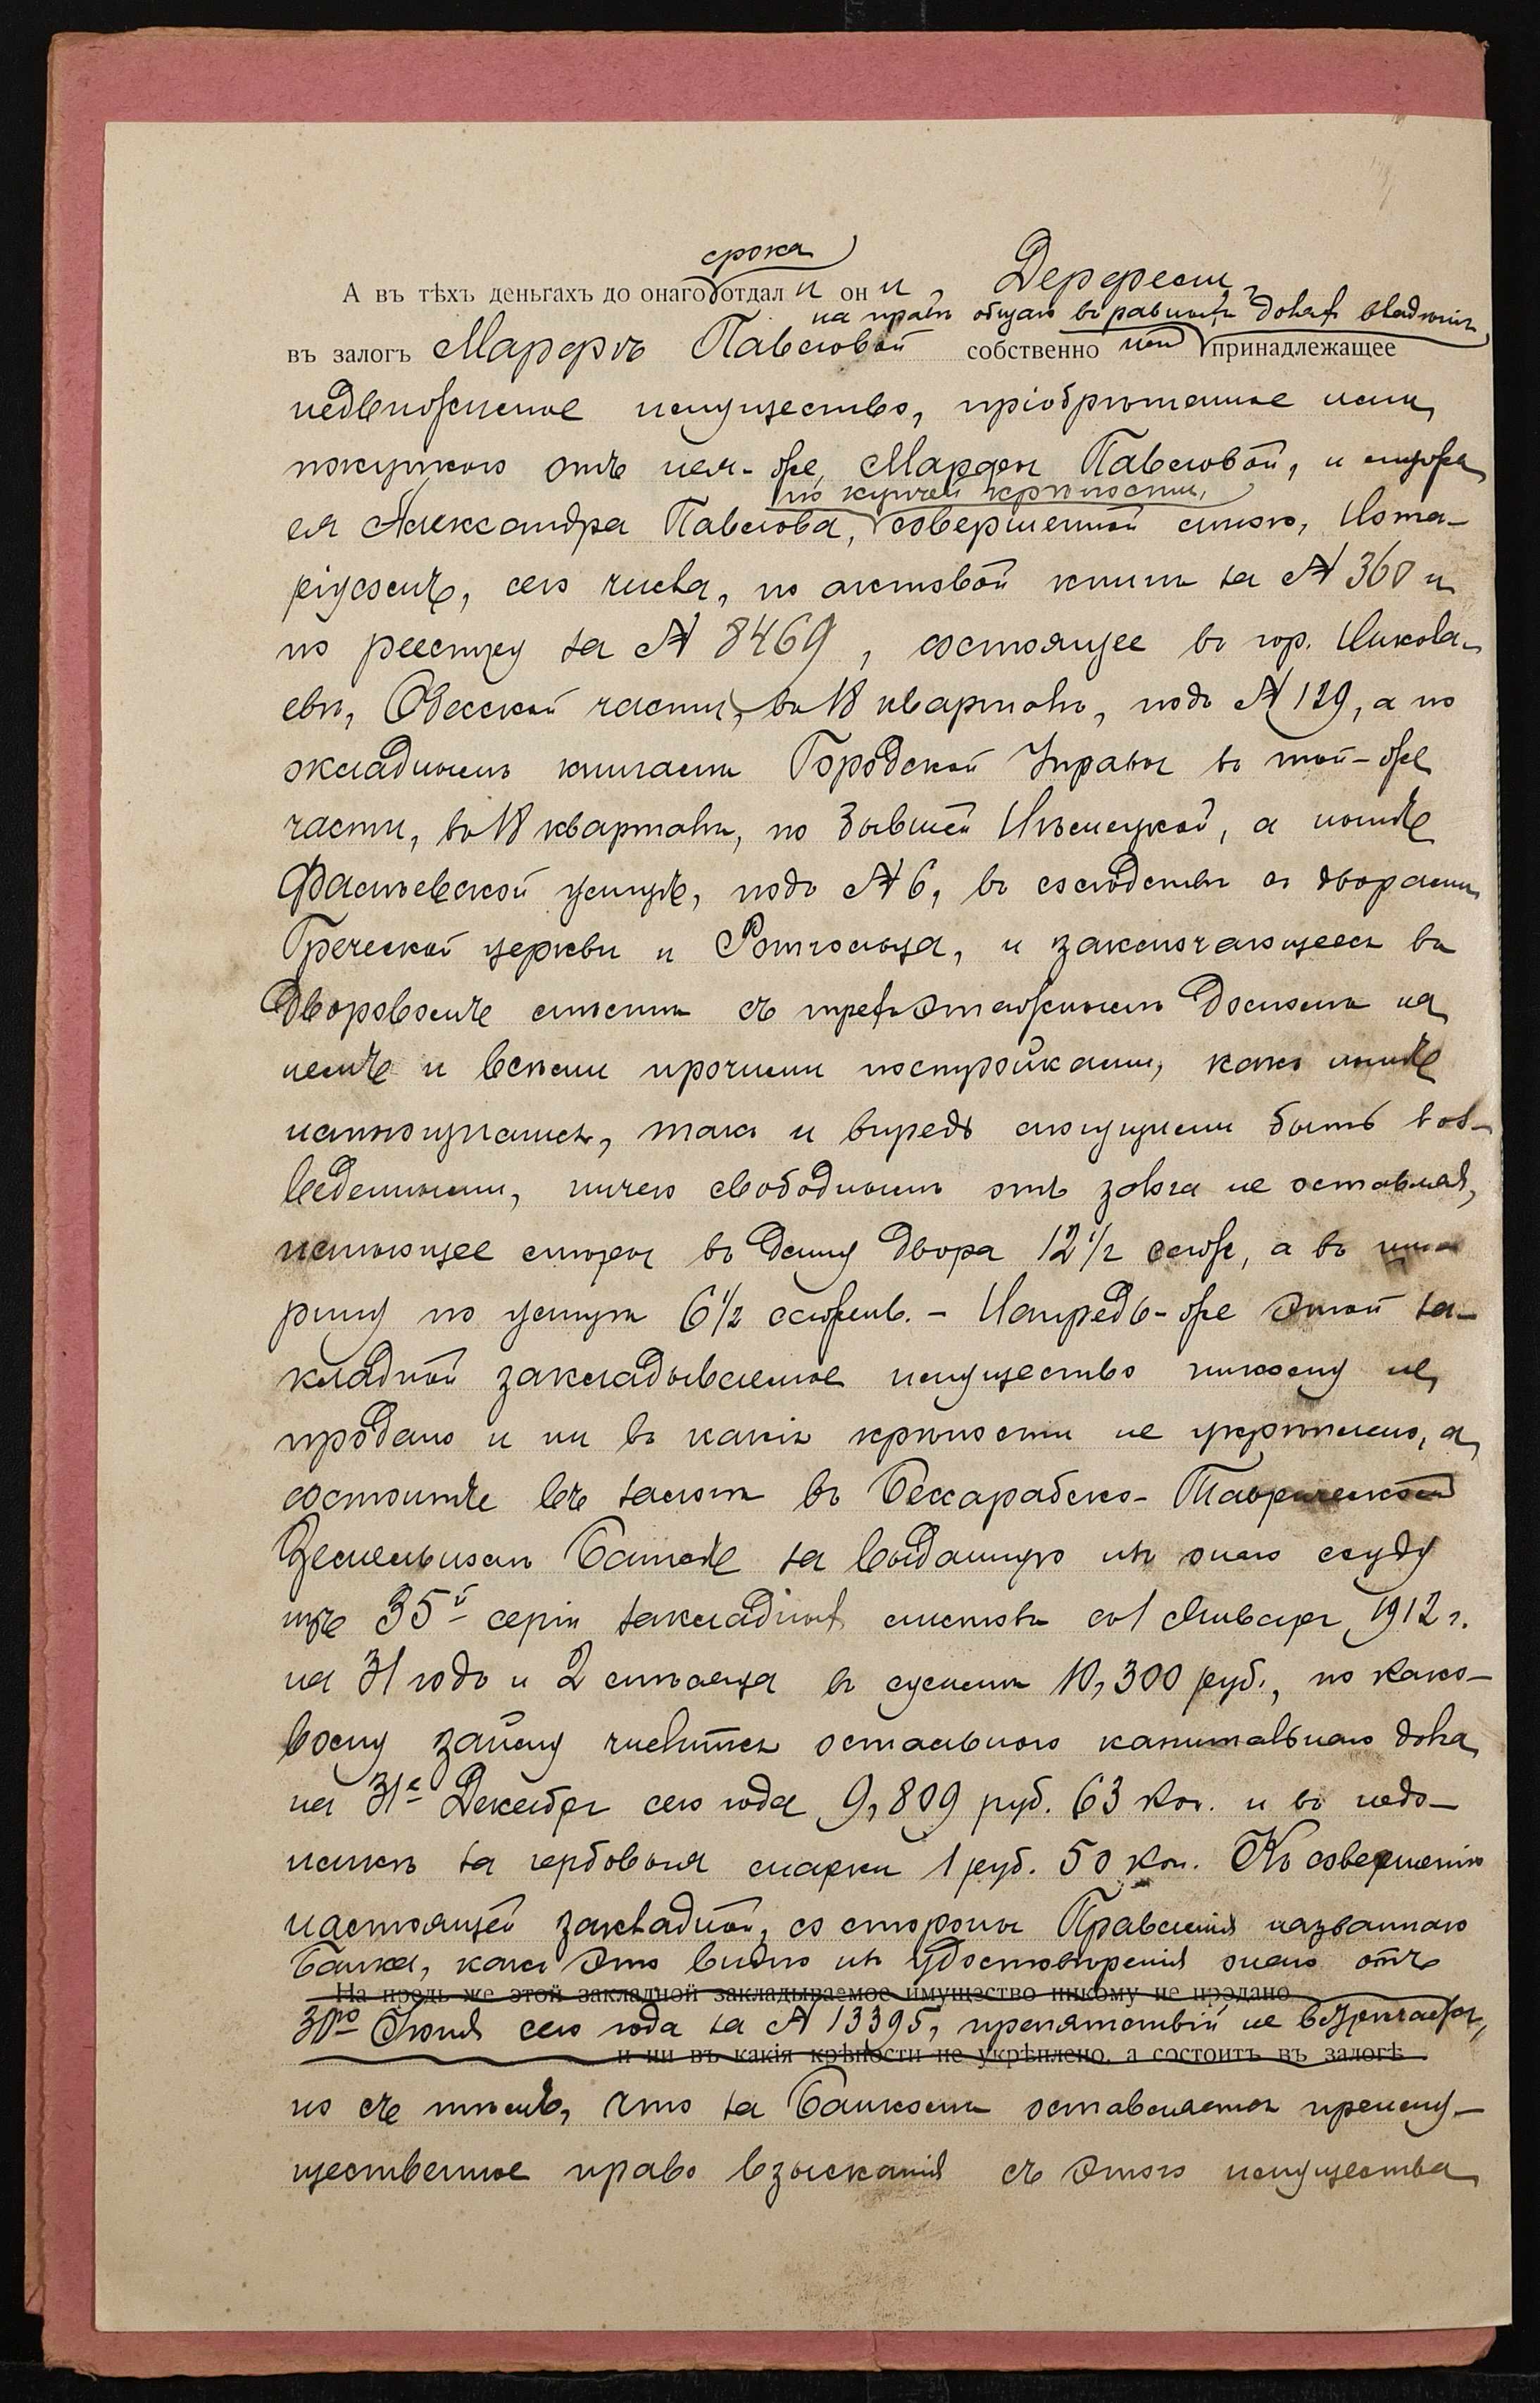 срока
А въ тѣхъ деньгахъ до онаго отдали они, Дерфели,
на правѣ общаго въ равныхъ доляхъ владѣнія
въ залогъ Марфѣ Павловой собственно имъ принадлежащее
недвижимое имущество, пріобрѣтенное ими
покупкою отъ нея-же, Марфы Павловой, и мужа
по купчей крѣпости,
ея Александра Павлова, совершенной мною, Нота-
ріусомъ, сего числа, по актовой книгѣ за № 360 и
по реестру за № 8469, состоящее въ гор. Никола-
евѣ, Одесской части, въ 18 кварталѣ, подъ № 129, а по
окладнымъ книгамъ Городской Управы въ той-же
части, въ 18 кварталѣ, по бывшей Нѣмецкой, а нынѣ
Фалѣевской улицѣ, подъ № 6, въ сосѣдствѣ съ дворами
Греческой церкви и Ротгольца, и заключающееся въ
дворовомъ мѣстѣ съ трехъэтажнымъ домомъ на
немъ и всѣми прочими постройками, какъ нынѣ
имѣющимися, такъ и впредь могущими быть воз-
веденными, ничего свободнымъ отъ залога не оставляя,
имѣющее мѣры въ длину двора 12 1/2 саж, а въ ши-
рину по улицѣ 6 1/2 сажень. - Напредь-же этой за-
кладной закладываемое имущество никому не
продано и ни въ какія крѣпости не укрѣплено, а
состоитъ въ залогѣ въ Бессарабско-Таврическомъ
Земельномъ Банкѣ за выданную изъ онаго ссуду
изъ 35й серіи закладныхъ листовъ съ 1 Января 1912 г.
на 31 годъ и 2 мѣсяца въ суммѣ 10,300 руб., по како-
вому займу числится остальнаго капитальнаго долга
на 31е Декабря сего года 9,809 руб. 63 коп. и въ недо-
имкѣ за гербовыя марки 1 руб. 50 коп. Къ совершенію
настоящей закладной, со стороны Правленія названнаго
Банка, какъ это видно изъ удостовѣренія онаго отъ
На предь же этой закладной закладываемое имущество никому не продано
30го Іюня сего года за № 13395, препятствій не встрѣчается,
и ни въ какія крѣпости не укрѣплено, а состоитъ въ залогѣ
но съ тѣмъ, что за Банкомъ оставляется преиму-
щественное право взысканія съ этого имущества